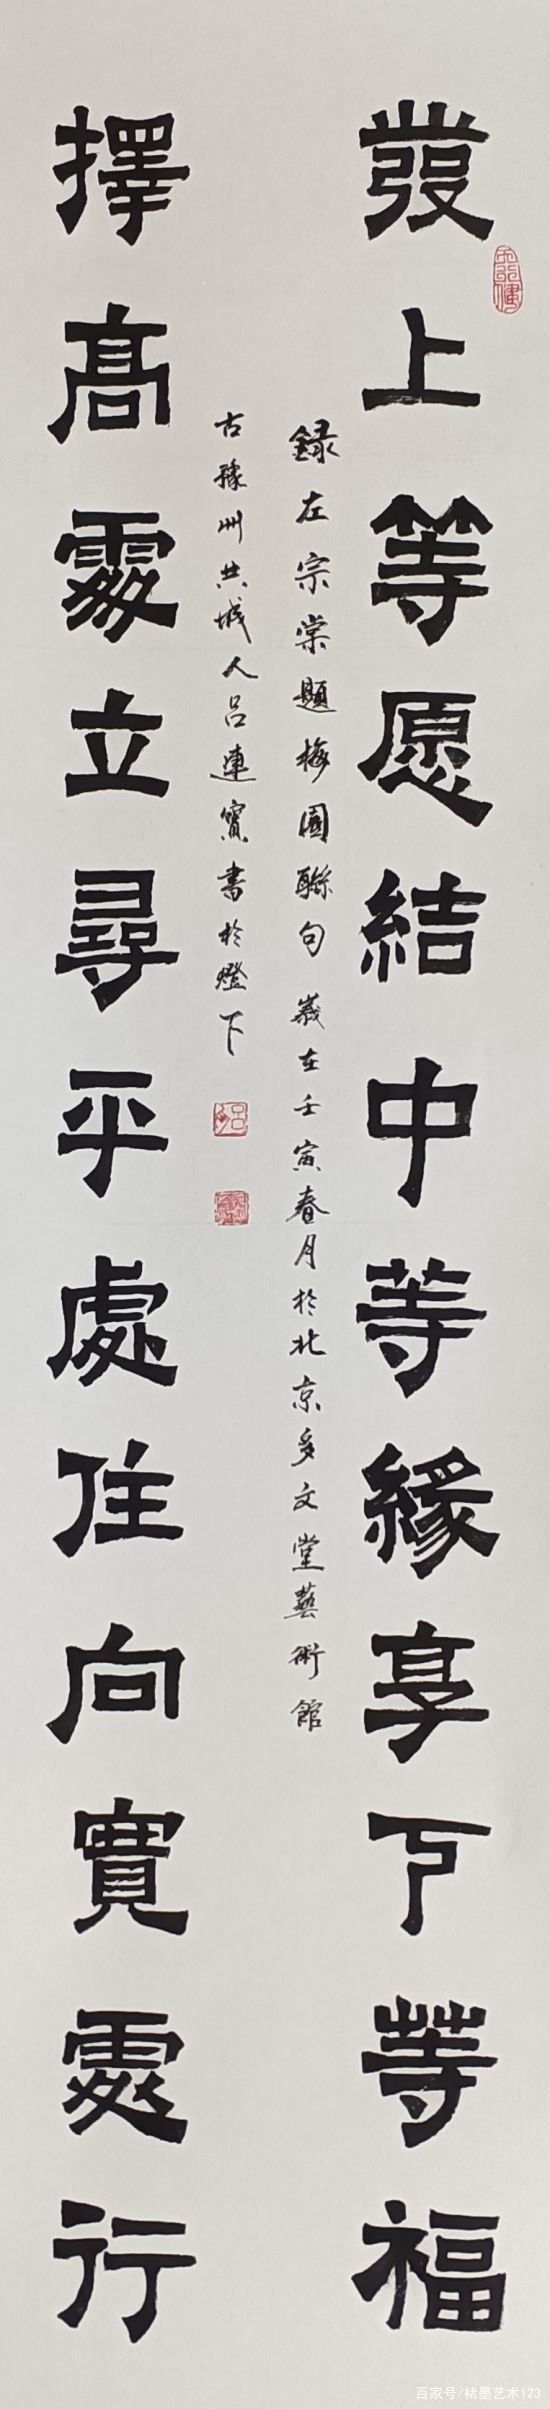 發上等愿結中等緣享下等福
錄左宗棠題梅園聯句 歲在壬寅春月於北京多文堂藝術館
古豫州共城人呂連寶書於燈下
擇高處立尋平處住向寬處行
百家号/楮墨艺术123